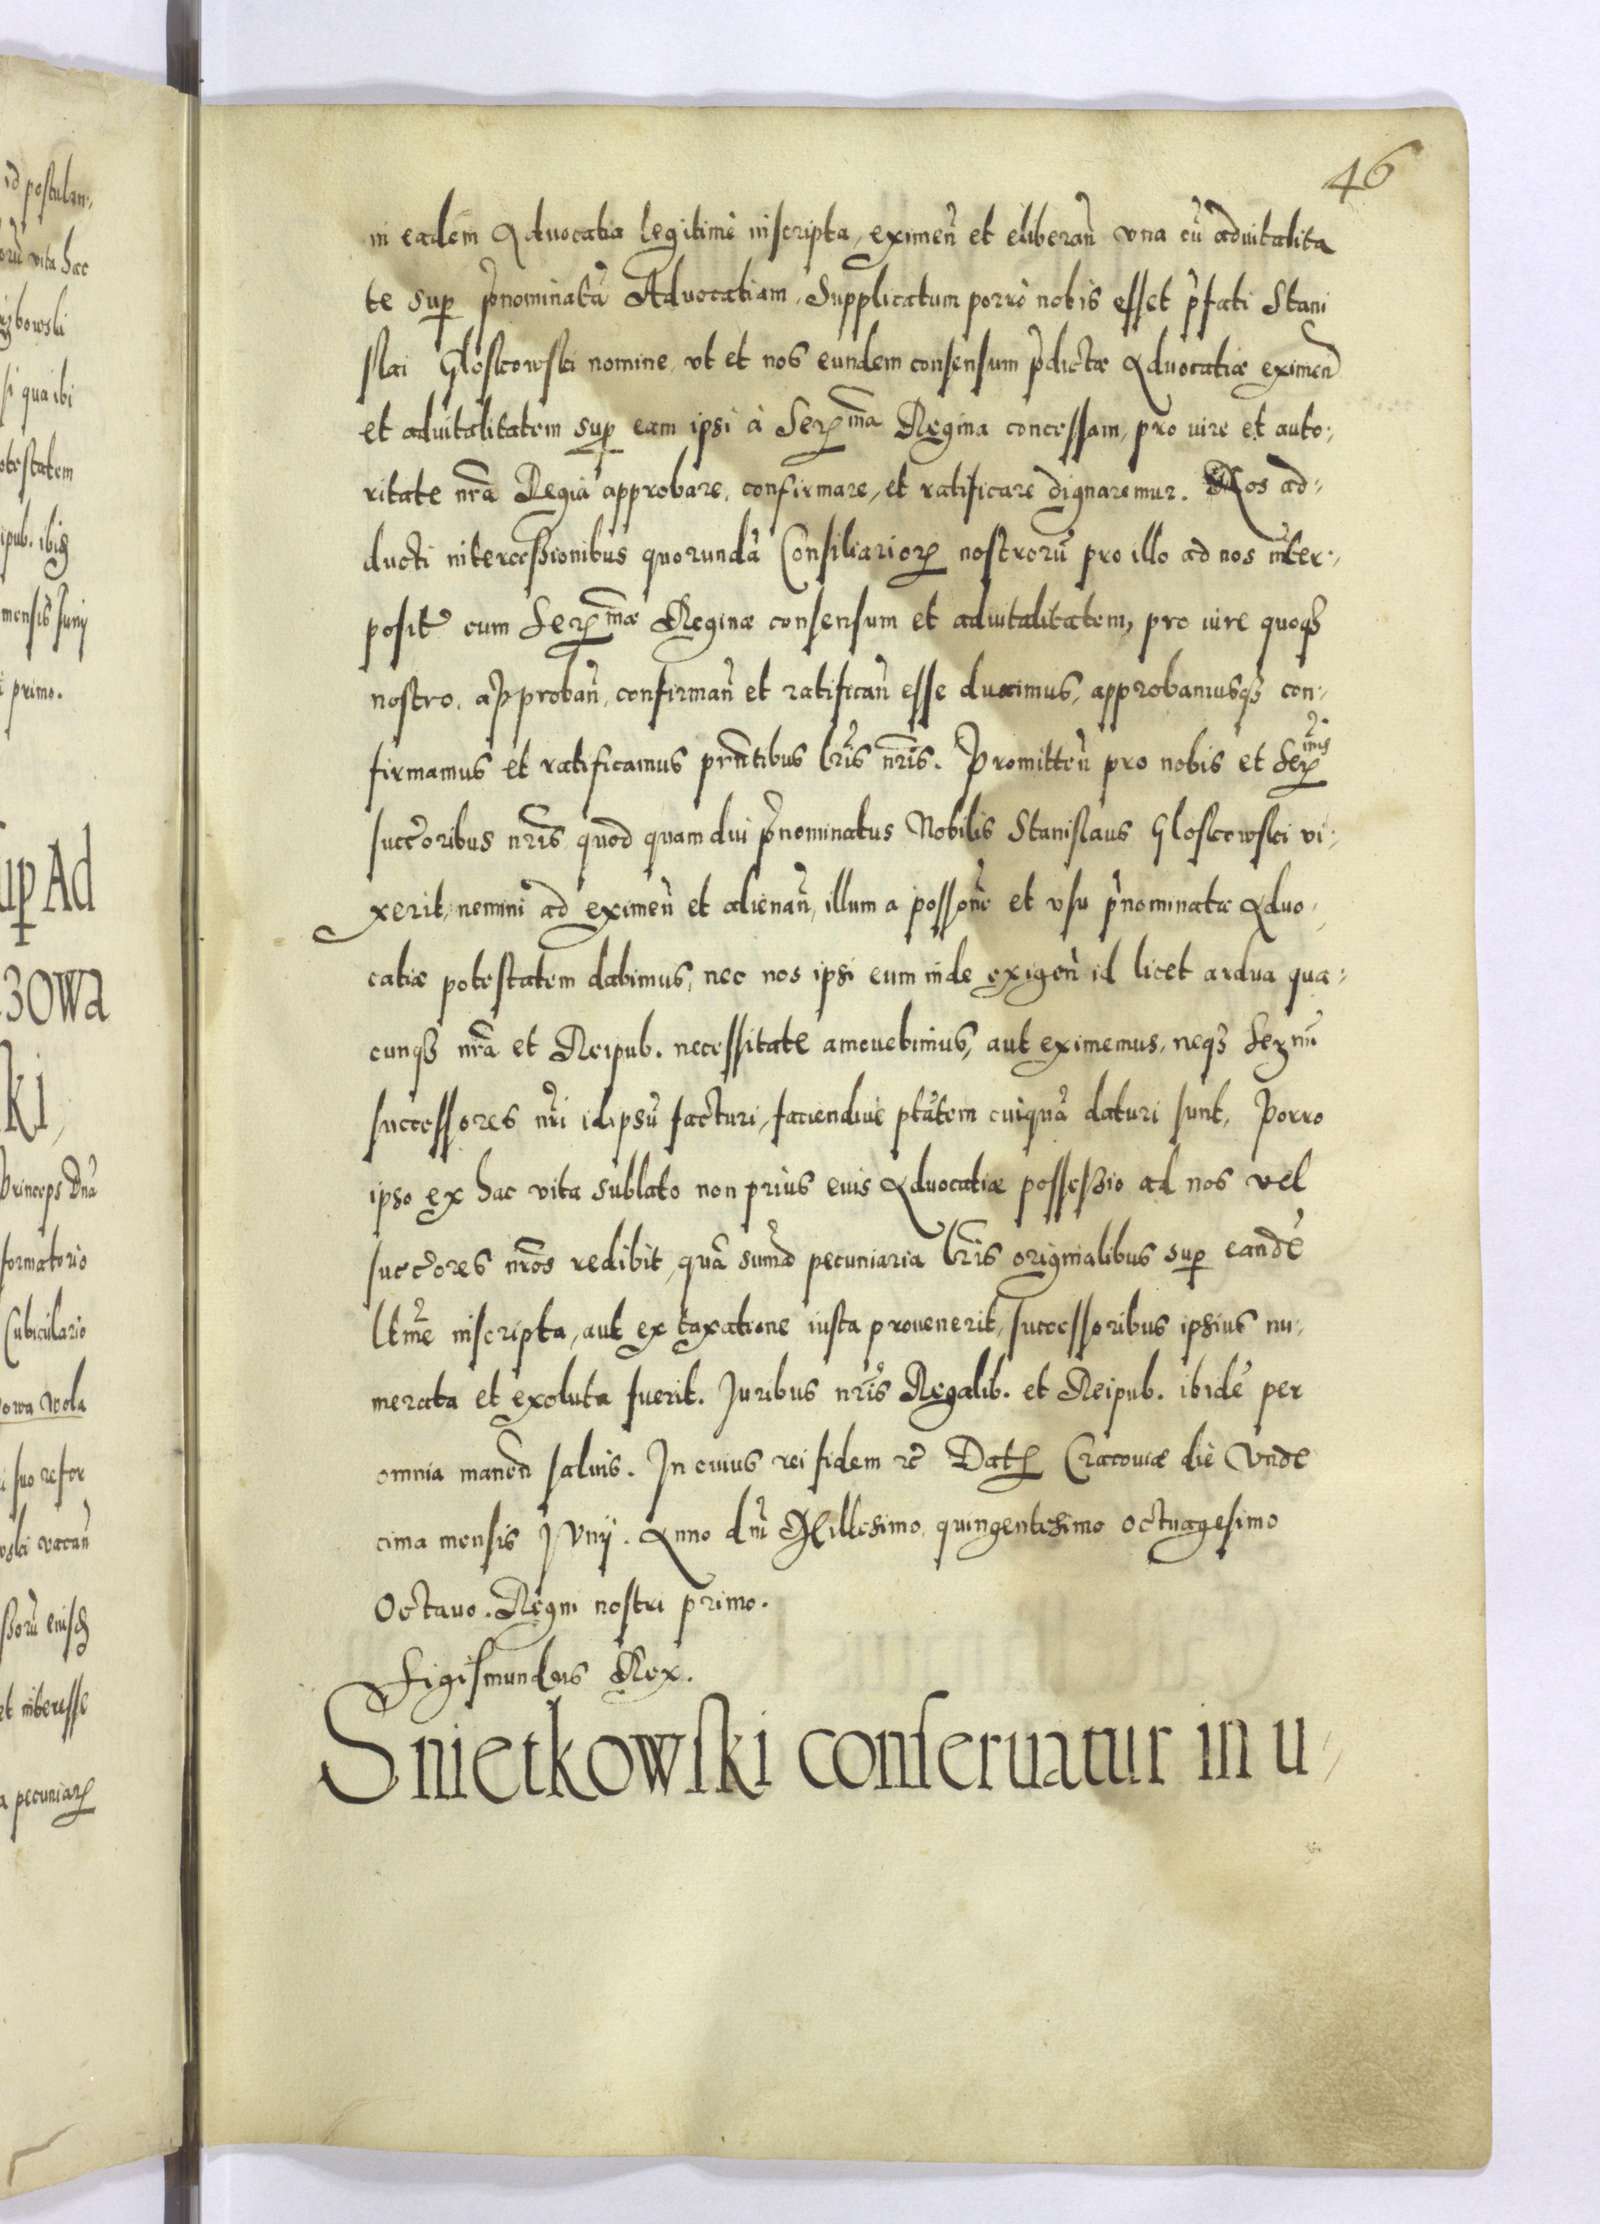 46
in eadem Advocatia legitimè inscripta, eximeñ et eliberañ vna cũ aduitalita
te sup p̃nominatã Advocatiam, Supplicatum porrò nobis esset p̃fati Stani
slai Gloskowski nomine, vt et nos eundem consensum p̃dictæ Aduocatiæ eximend̃
et aduitalitatem sup eam ipsi à Ser^ma Regina concessam, pro iure et auto:
ritate nr̃a Regia approbare, confirmare, et ratificare dignaremur. Nos ad:
ducti intercessionibus quorundã Consiliarior nostrorũ pro illo ad nos inter:
posit̃ eum Ser^mæ Reginæ consensum et aduitalitatem, pro iure quoqȝ
nostro, approbañ, confirmañ et ratificañ esse duximus, approbamusqȝ con:
firmamus et ratificamus prñtibus lr̃is nr̃is. Promitteñ pro nobis et Ser^mis
succ̃oribus nr̃is quod quam diu p̃nominatus Nobilis Stanislaus Gloskowski vi:
xerit, nemini ad eximeñ et alienañ, illum a possõne et vsu p̃nominatæ Aduo:
catiæ potestatem dabimus, nec nos ipsi eum inde exigeñ id licet ardua qua:
cunqȝ nr̃a et Reipub. necessitate amouebimus, aut eximemus, neqȝ Ser^mi
successores nr̃i idipsũ facturi, faciendiuè ptãtem cuiquã daturi sunt, Porro
ipso ex hac vita sublato non priùs eius Aduocatiæ possessio ad nos vel
succ̃ores nr̃os redibit, quã summa pecuniaria lr̃is originalibus sup eandẽ
ltm̃e inscripta, aut ex taxatione iusta prouenerit, successoribus ipsius nu:
merata et exoluta fuerit. Juribus nr̃is Regalib. et Reipub. ibidẽ per
omnia maneñ saluis. In cuius rei fidem rc̃ Dat Cracouiæ die Vnde
cima mensis Junij. Anno dn̄i Millesimo quingentesimo octuagesimo
Octauo. Regni nostri primo.
Sigismundus Rex.
Snietkowski conseruatur in u: